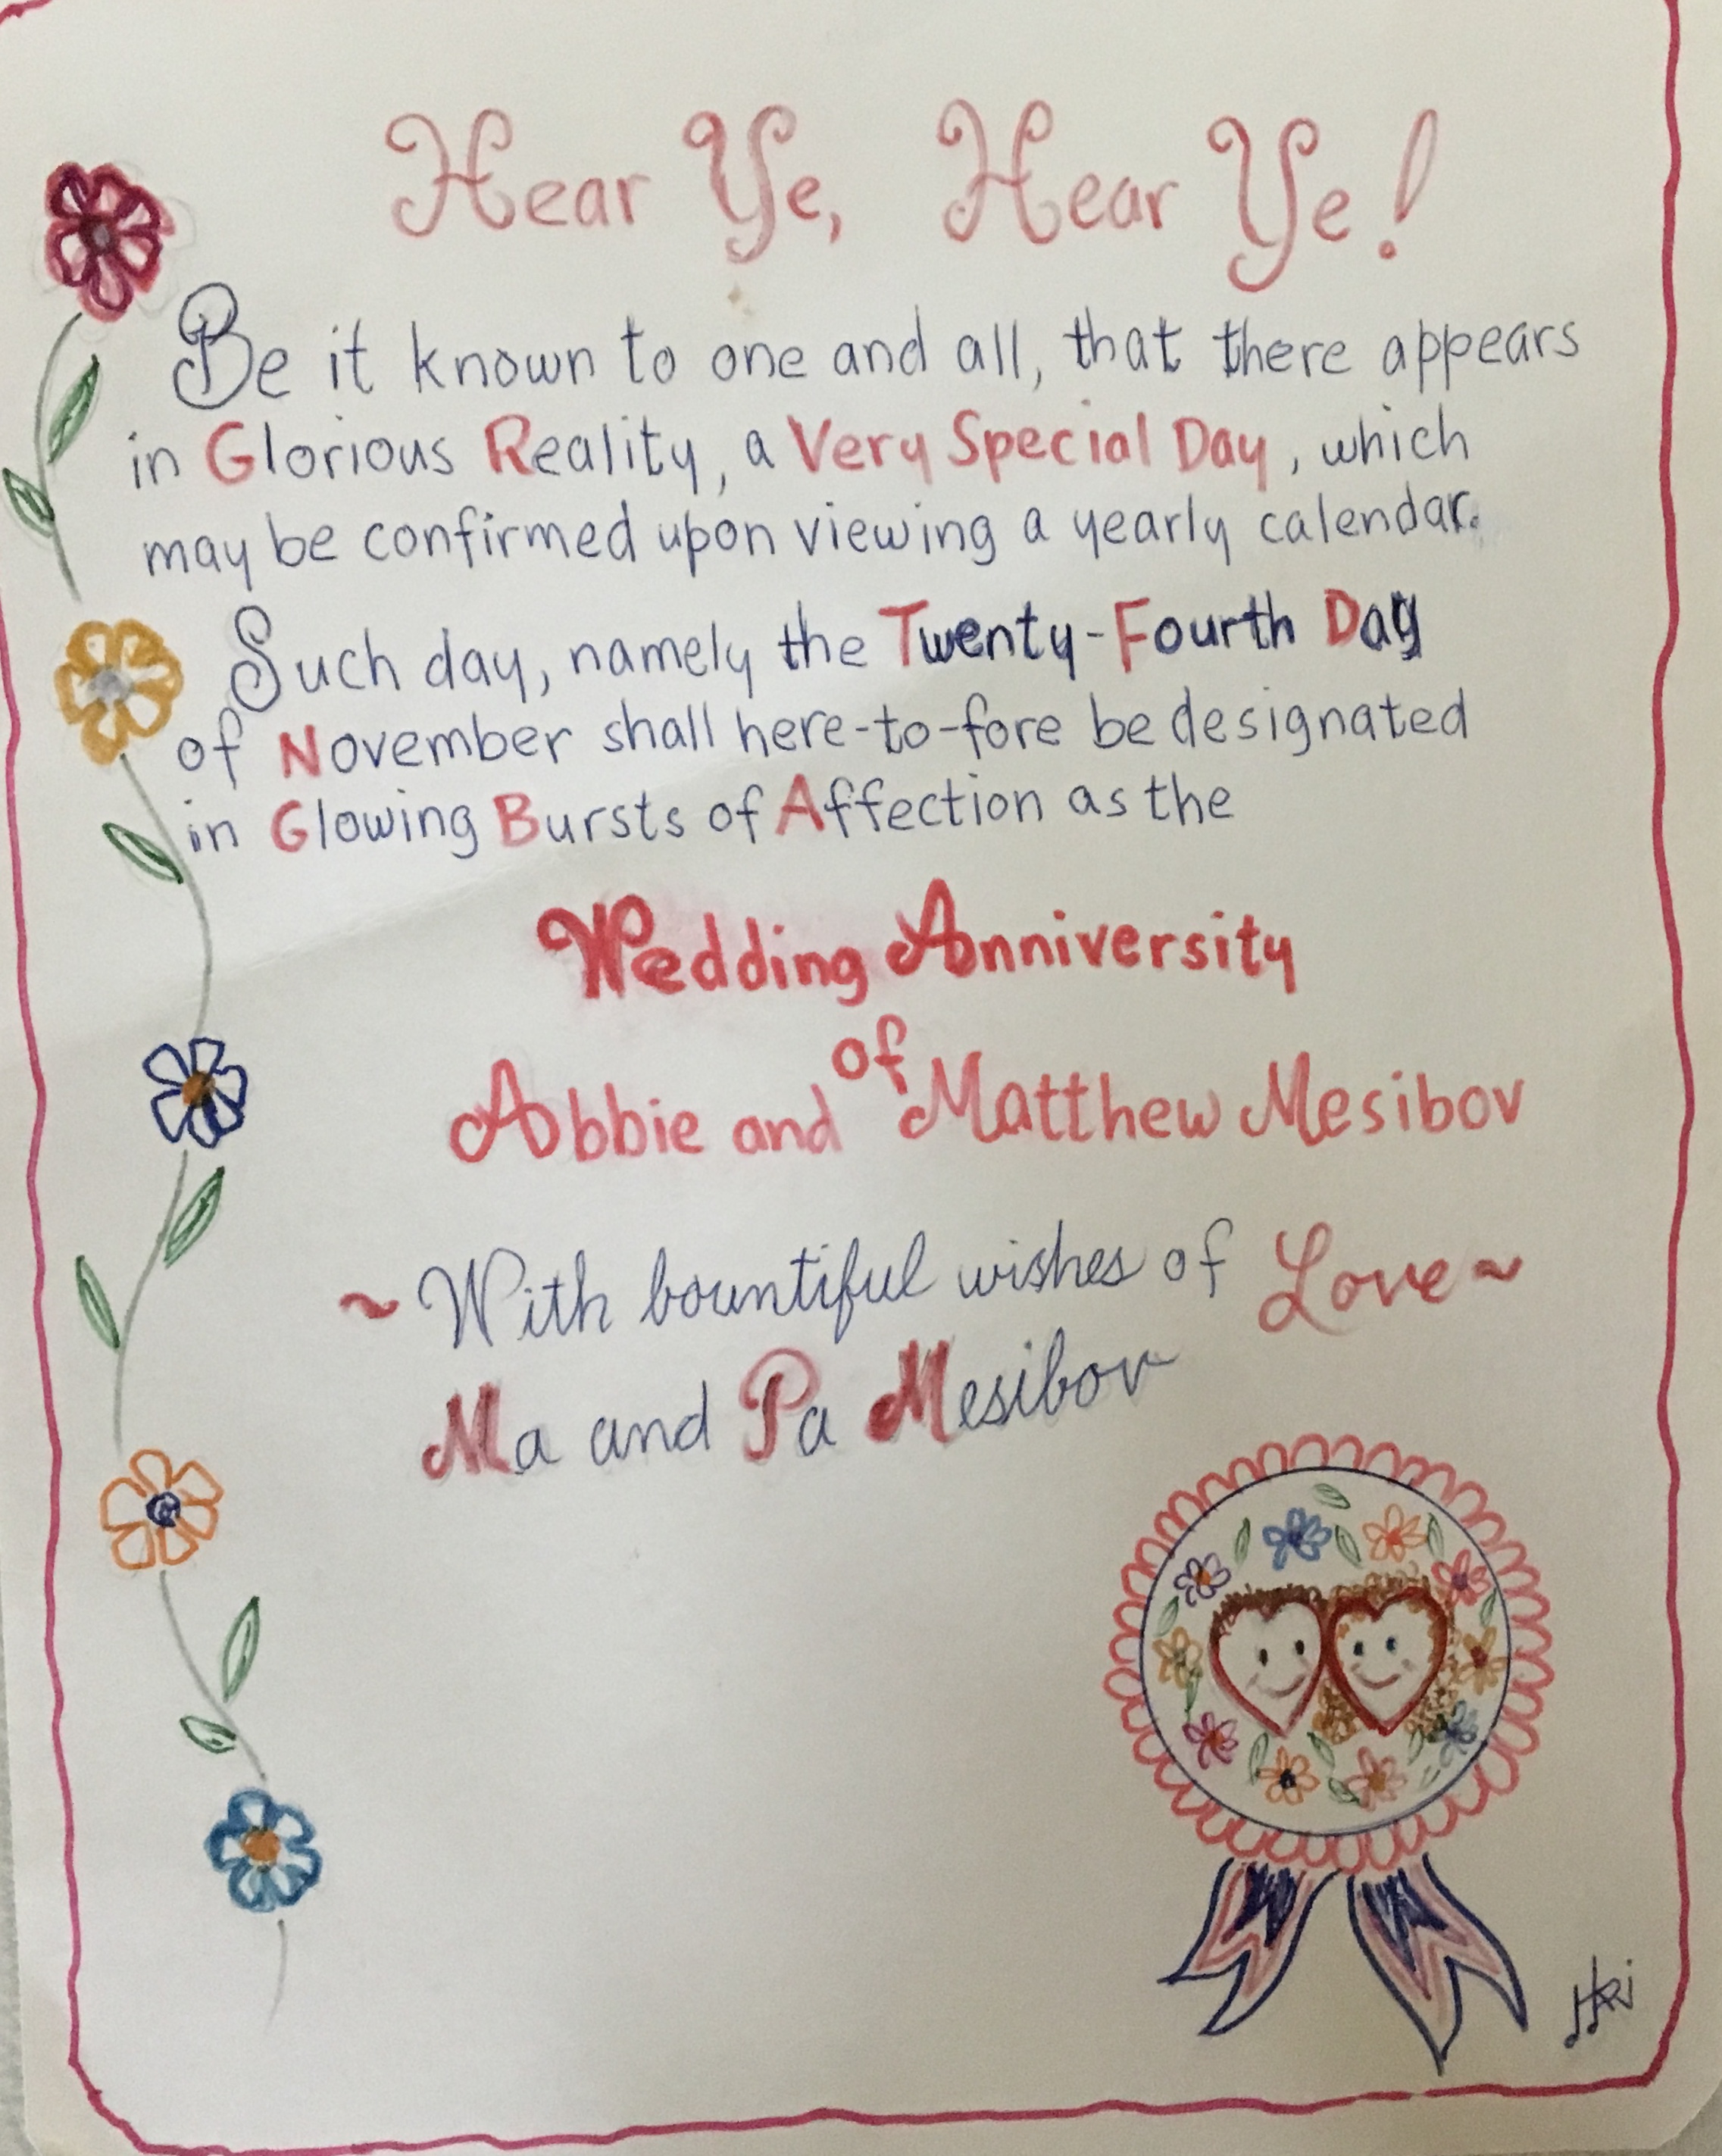 Hear Ye, Hear Ye!
Be it known to one and all, that there appears
in Glorious Reality, a Very Special Day, which
may be confirmed upon viewing a yearly calendar.
Such day, namely the Twenty-Fourth Day
of November shall here-to-fore be designated
in Glowing Bursts of Affection as the
Wedding Anniversity
of
Abbie and Matthew Mesibov
~With bountiful wishes of Love~
Ma and Pa Mesibov